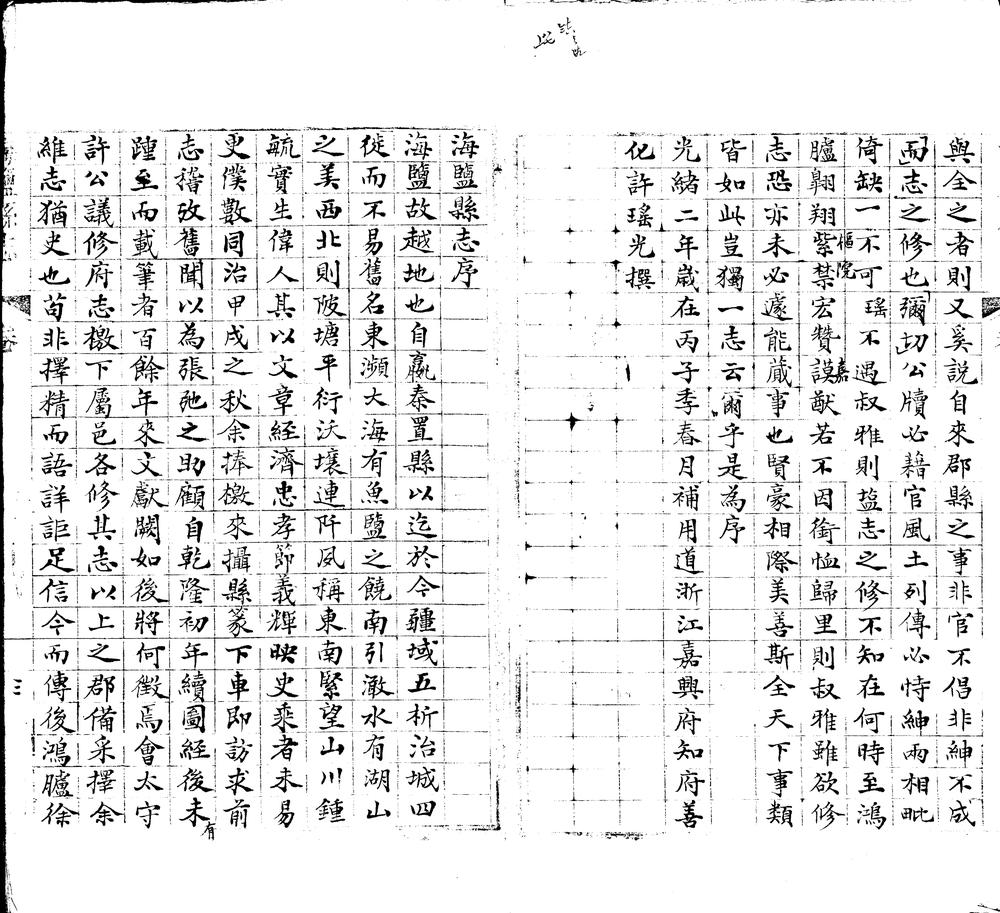 與全之者則又奚說自來郡縣之事非官不倡非紳不成
而志之修也彌切公牘必藉官風土列傳必恃紳兩相毗
倚缺一不可瑤不遇叔雅則盐志之修不知在何時至鴻
臚翱翔紫禁樞院宏贊謨嘉猷若不因銜恤歸里則叔雅雖欲修
志恐亦未必遽能蕆事也賢豪相際美善斯全天下事類
皆如此豈獨一志云爾乎是為序
光緒二年歲在丙子季春月補用道浙江嘉興府知府善
化許瑤光撰
海鹽縣志序
海鹽故越地也自嬴秦置縣以迄於今疆域五析治城四
徙而不易舊名東瀕大海有魚鹽之饒南引澉水有湖山
之美西北則陂塘平衍沃壤連阡夙稱東南緊望山川鍾
毓實生偉人其以文章經濟忠孝節義輝映史乘者未易
更僕數同治甲戌之秋余捧檄來攝縣篆下車即訪求前
志稽攷舊聞以為張弛之助顧自乾隆初年續圖經後未有
踵至而載筆者百餘年來文獻闕如後將何徵焉會太守
許公議修府志檄下屬邑各修其志以上之郡備采擇余
維志猶史也苟非擇精而語詳詎足信今而傳後鴻臚徐